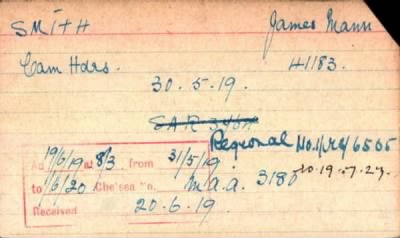 SMITH James Mann
Cam Hdrs. 41183.
30.5.19.
S.A.R.
Regional No.1/ 6505
Ad 19/6/19 at 8/3 from 31/5/19
to 1/6/20 Chelsea No. M.a.a. 3180 20.19.7.27.
Received 20.6.19.